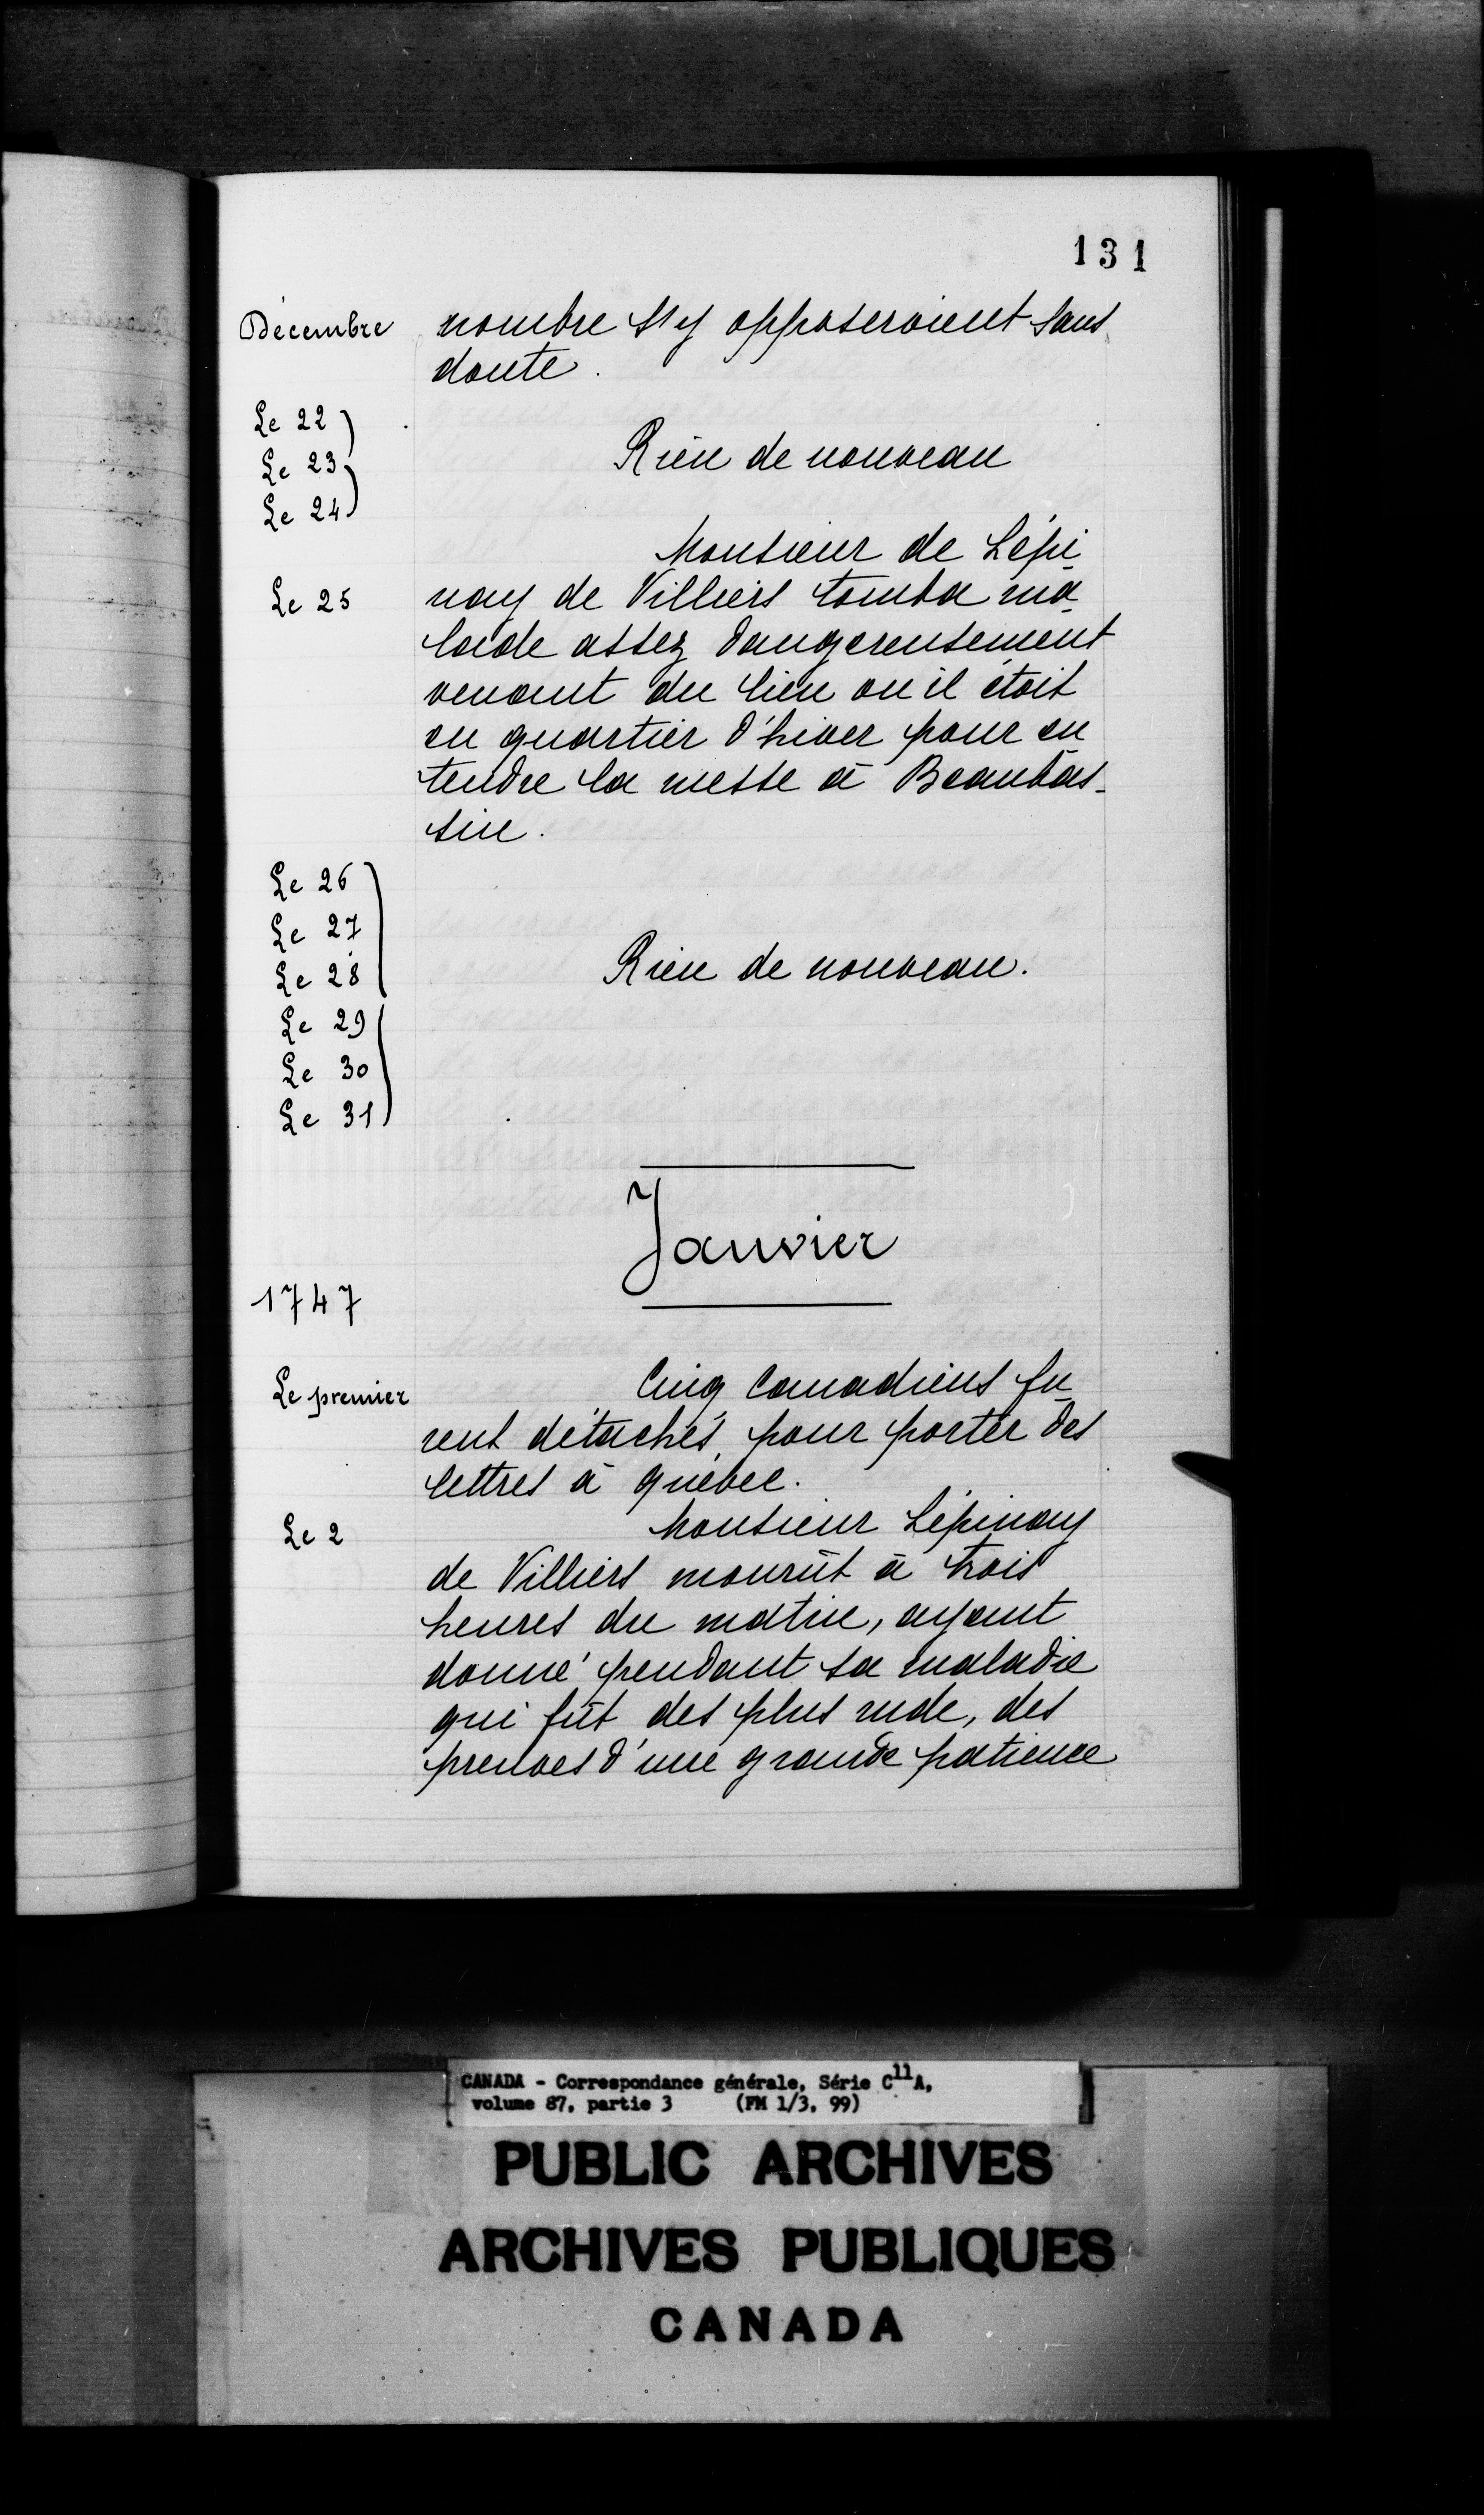 131
Décembre nombre s'y opposeroient sans
doute.
Le 22
Le 23 Rien de nouveau
Le 24
Monsieur de Lépi-
Le 25 nay de Villiers tomba ma-
lade assez dangereusement
venant du lieu ou il étoit
en quartier d'hiver pour en
tendre la messe à Beaubas-
sin.
Le 26
Le 27
Le 28 Rien de nouveau.
Le 29
Le 30
Le 31
Janvier
1747
Le premier Cinq Canadiens fu-
rent détachés pour porter des
lettres à québec.
Le 2 Monsieur Lépinay
de Villiers mourût à trois
heures du matin, ayant
donné pendant sa maladie
qui fût des plus rude, des
preuves d'une grande patience
CANADA - Correspondance générale, Série C11A,
volume 87, partie 3 (FM 1/3, 99)
PUBLIC ARCHIVES
ARCHIVES PUBLIQUES
CANADA